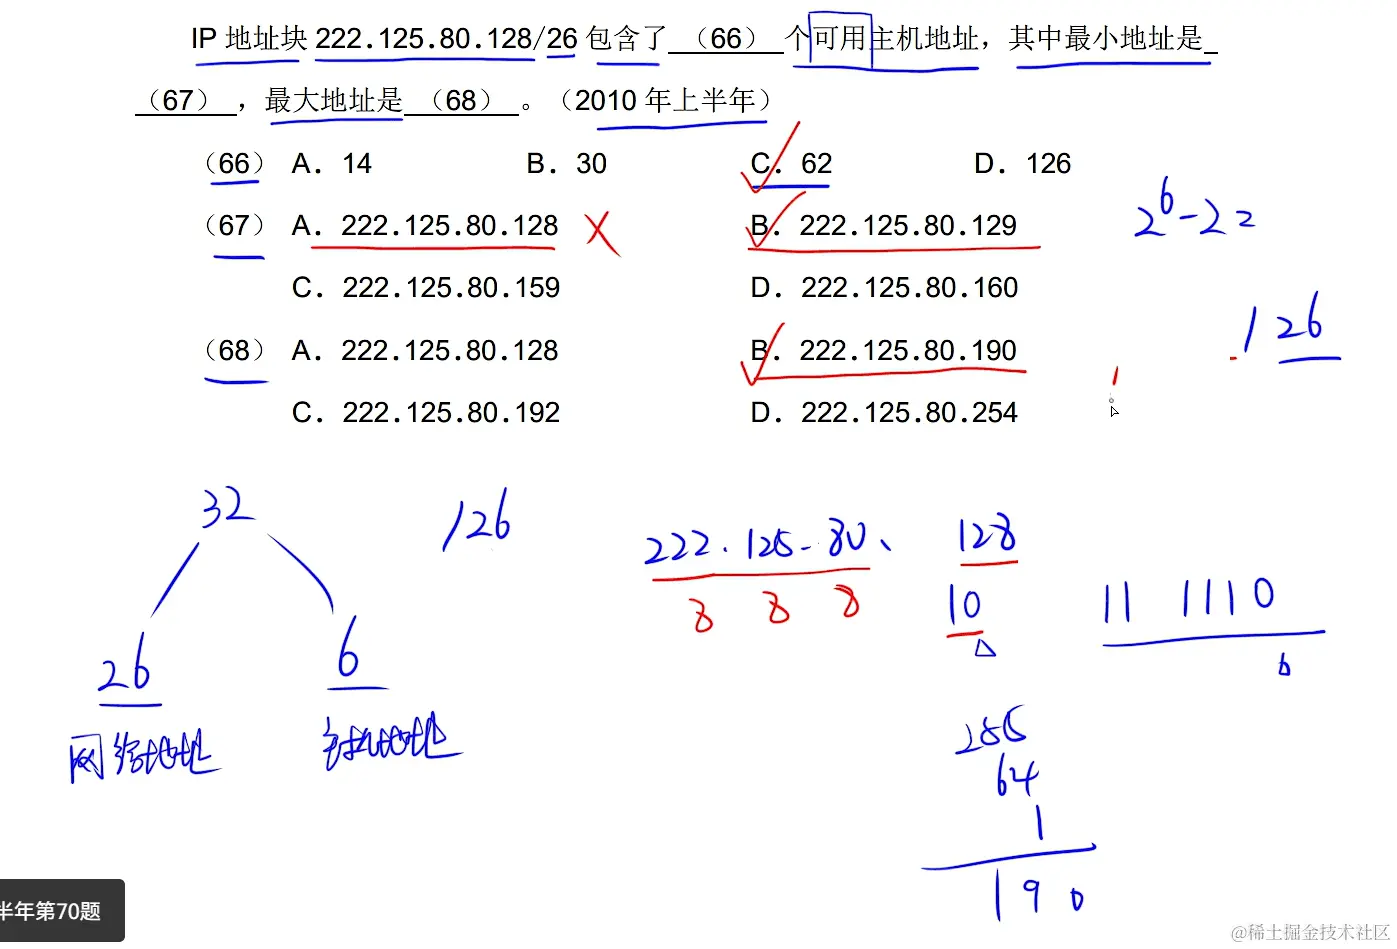 IP 地址块 222.125.80.128/26 包含了 （66） 个可用主机地址，其中最小地址是
（67） ，最大地址是 （68） 。（2010 年上半年）
（66） A. 14 B. 30 C. 62 D. 126
（67） A. 222.125.80.128 B. 222.125.80.129
C. 222.125.80.159 D. 222.125.80.160
（68） A. 222.125.80.128 B. 222.125.80.190
C. 222.125.80.192 D. 222.125.80.254
2⁶-2=
/26
32
/26
26 6
网络地址 主机地址
222.125.80、 128
8 8 8 10
11 1110
6
255
64
1
190
半年第70题
@稀土掘金技术社区